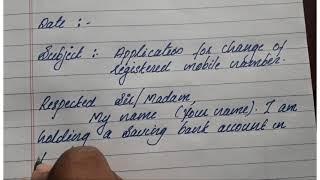 Date :-
Subject :- Application for change of
registered mobile number.
Respected Sir/Madam,
My name (Your name). I am
holding a saving bank account in